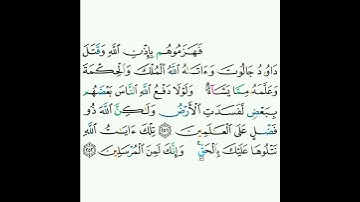 فَهَزَمُوهُم بِإِذْنِ ٱللَّهِ وَقَتَلَ
دَاوُۥدُ جَالُوتَ وَءَاتَىٰهُ ٱللَّهُ ٱلْمُلْكَ وَٱلْحِكْمَةَ
وَعَلَّمَهُۥ مِمَّا يَشَآءُ ۗ وَلَوْلَا دَفْعُ ٱللَّهِ ٱلنَّاسَ بَعْضَهُم
بِبَعْضٍ لَّفَسَدَتِ ٱلْأَرْضُ وَلَـٰكِنَّ ٱللَّهَ ذُو
فَضْلٍ عَلَى ٱلْعَـٰلَمِينَ ٢٥١ تِلْكَ ءَايَـٰتُ ٱللَّهِ
نَتْلُوهَا عَلَيْكَ بِٱلْحَقِّ ۚ وَإِنَّكَ لَمِنَ ٱلْمُرْسَلِينَ ٢٥٢